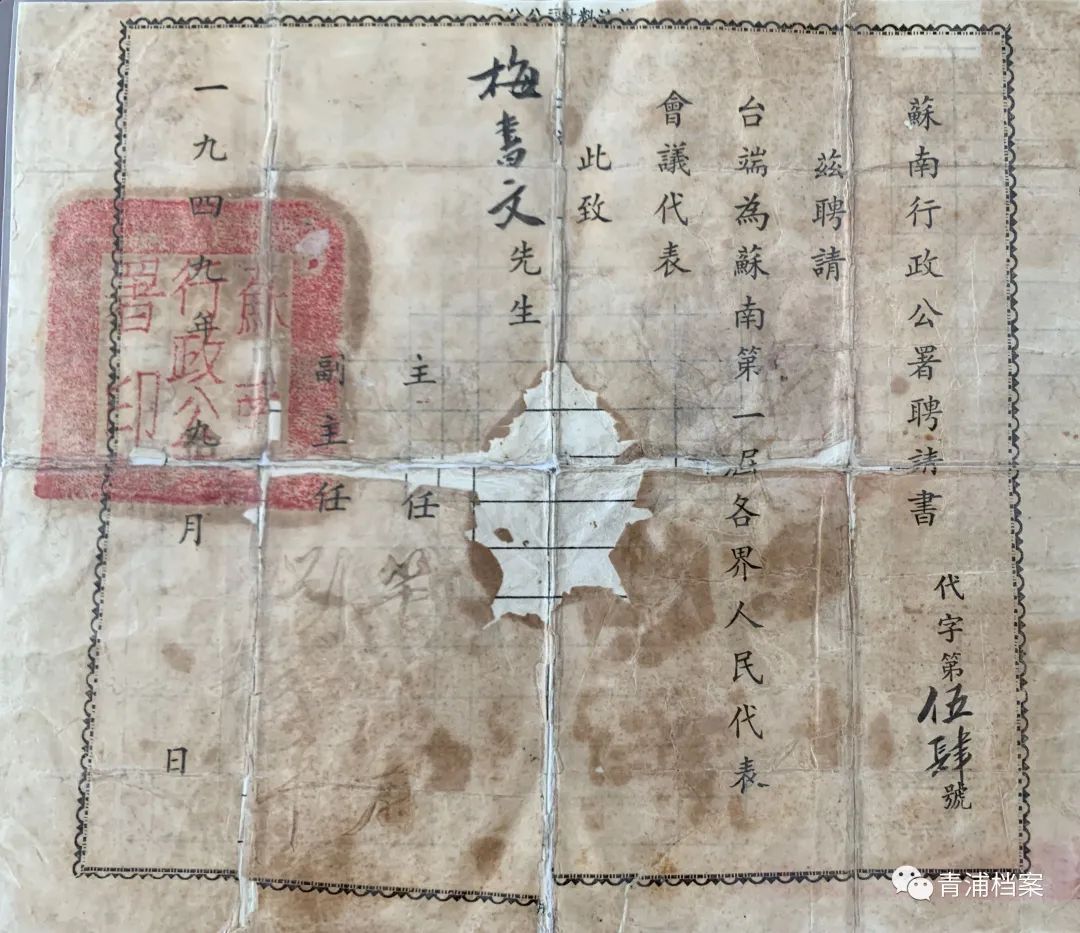 蘇南行政公署聘請書
代字第伍肆號
茲聘請
台端為蘇南第一屆各界人民代表
會議代表
此致
梅書文先生
主任
副主任
一九四九年九月 日
蘇南
行政公
署印
青浦档案